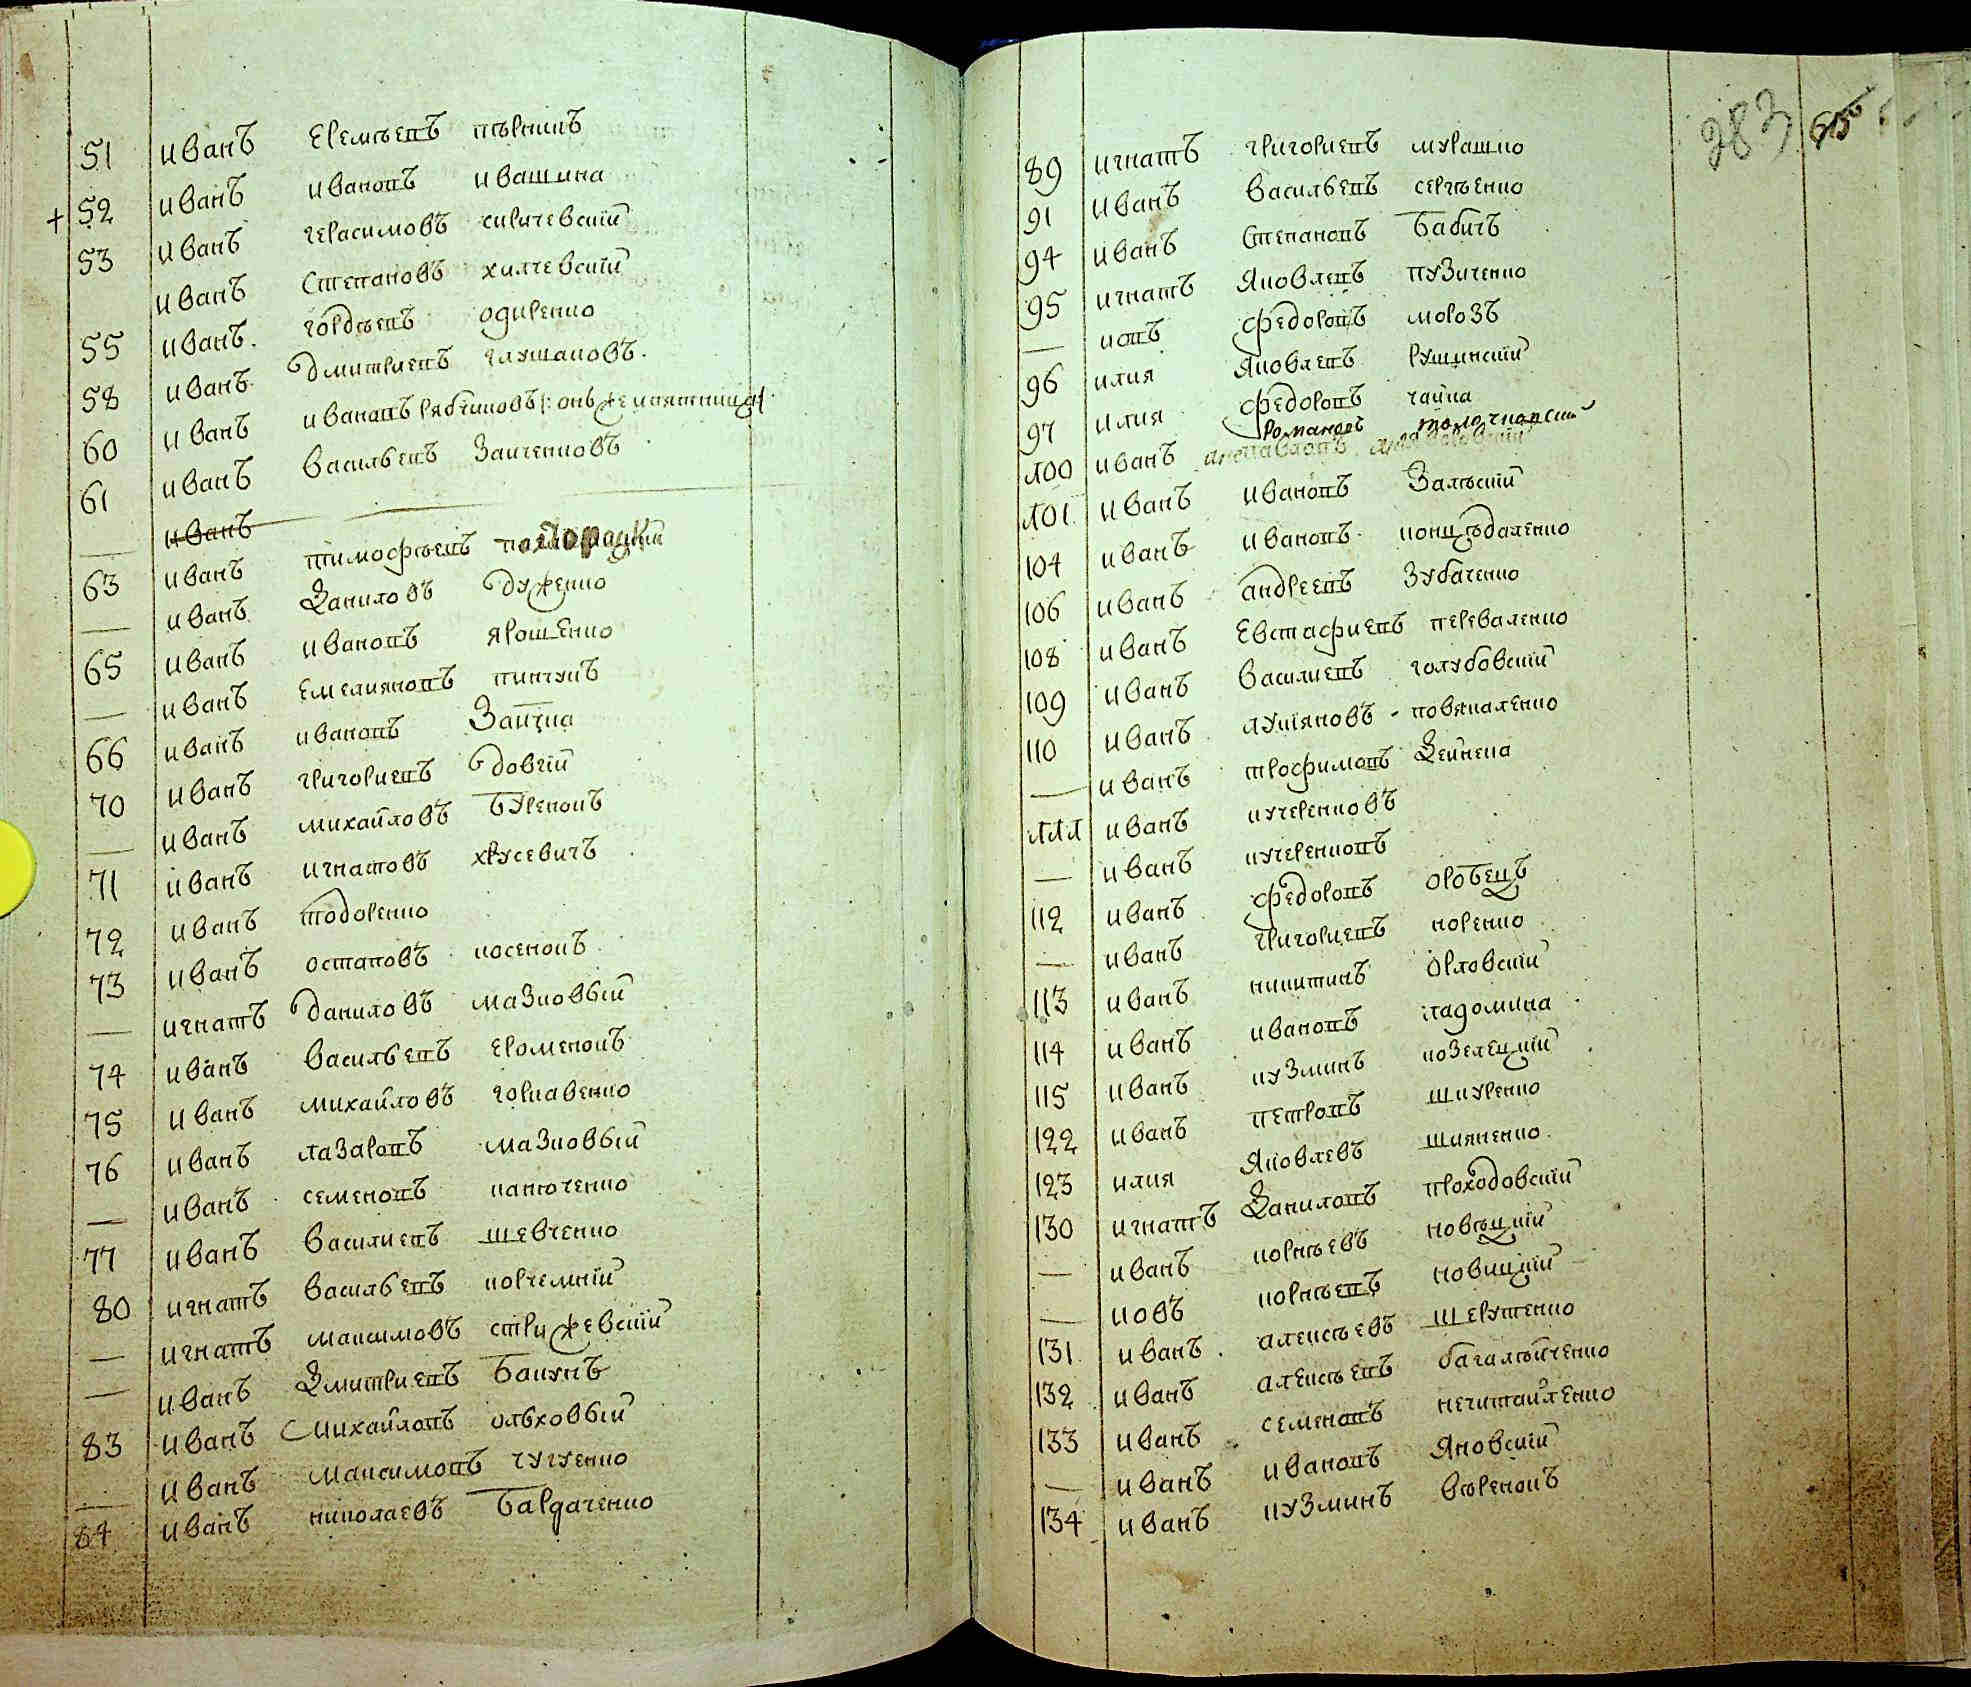 51 иванъ еремѣевъ пѣрнинъ
+ 52 иванъ ивановъ ивашина
53 иванъ герасимовъ киричевскїй
иванъ степановъ хилчевскїй
55 иванъ гордѣевъ одиренко
58 иванъ дмитриевъ глушаковъ
60 иванъ ивановъ рябчиковъ
61 иванъ васильевъ заиченковъ
— иванъ
63 иванъ тимофѣевъ
— иванъ даниловъ дуженко
65 иванъ ивановъ ярошенко
— иванъ емелияновъ пинчукъ
66 иванъ ивановъ заичка
70 иванъ григориевъ довгїй
— иванъ михайловъ буренокъ
71 иванъ игнатовъ хрусевичъ
72 иванъ тодоренко
73 иванъ остаповъ косенокъ
— игнатъ даниловъ мазковый
74 иванъ васильевъ еременокъ
75 иванъ михайловъ горкавенко
76 иванъ лазаровъ мазковый
— иванъ семеновъ панюченко
77 иванъ василиевъ шевченко
80 игнатъ васильевъ корчемнїй
— игнатъ максимовъ стрижевскїй
— иванъ дмитриевъ бакунъ
83 иванъ михайловъ олъховый
— иванъ максимовъ чугуенко
84 иванъ николаевъ бардаченко
283
89 игнатъ григориевъ мурашко
91 иванъ васильевъ сергѣенко
94 иванъ степановъ бабичъ
95 игнатъ яковлевъ пузиченко
— иовъ федоровъ морозъ
96 илия яковлевъ рушинскїй
97 илия федоровъ чайка
100 иванъ романовъ
101 иванъ ивановъ залѣскїй
104 иванъ ивановъ концѣдаленко
106 иванъ андреевъ зубаченко
108 иванъ евстафиевъ переваленко
109 иванъ василиевъ голубовскїй
110 иванъ лукіяновъ ковяваленко
— иванъ трофимовъ дейнека
111 иванъ кучеренковъ
— иванъ кучеренковъ
112 иванъ федоровъ оробецъ
— иванъ григориевъ норенко
113 иванъ никитинъ орловскїй
114 иванъ ивановъ падомина
115 иванъ кузминъ козелецкїй
122 иванъ петровъ шкуренко
123 илия яковлевъ шияненко
130 игнатъ даниловъ проходовскїй
— иванъ корнѣевъ новицкїй
— иовъ корнѣевъ новицкїй
131 иванъ алексѣевъ шерутенко
132 иванъ алексѣевъ багалѣйченко
133 иванъ семеновъ нечитайленко
— иванъ ивановъ яновскїй
134 иванъ кузминъ вѣренокъ